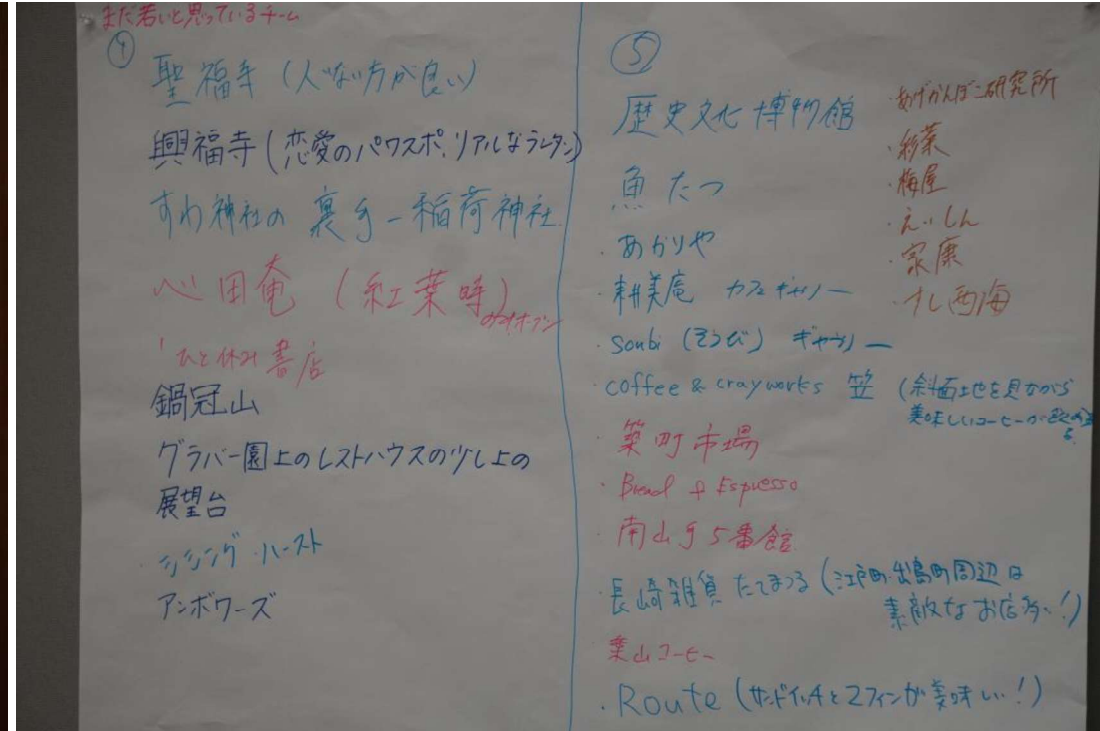 まだ若いと思っているチーム
④
聖福寺(人いない方が良い)
興福寺(恋愛のパワスポ、リアルなランタン)
すわ神社の裏手ー稲荷神社
心田庵(紅葉時)のみオープン
ひと休み書店
鍋冠山
グラバー園上のレストハウスの少し上の
展望台
・シシング・ハースト
アンボワーズ
⑤
歴史文化博物館
魚たつ
・あかりや
・耕美庵 カフェギャラリー
・soubi(そうび)ギャラリー
coffee & crayworks 笠(斜面地を見ながら
美味しいコーヒーが飲める
・築町市場
・Bread & Espresso
・南山手5番館
・長崎雑貨 たてまつる(江戸町・出島町周辺は
素敵なお店多い!)
葉山コーヒー
・Route(サンドイッチとマフィンが美味しい!)
・あげかんぼこ研究所
・彩菜
・梅屋
・えいしん
・家康
・すし西海